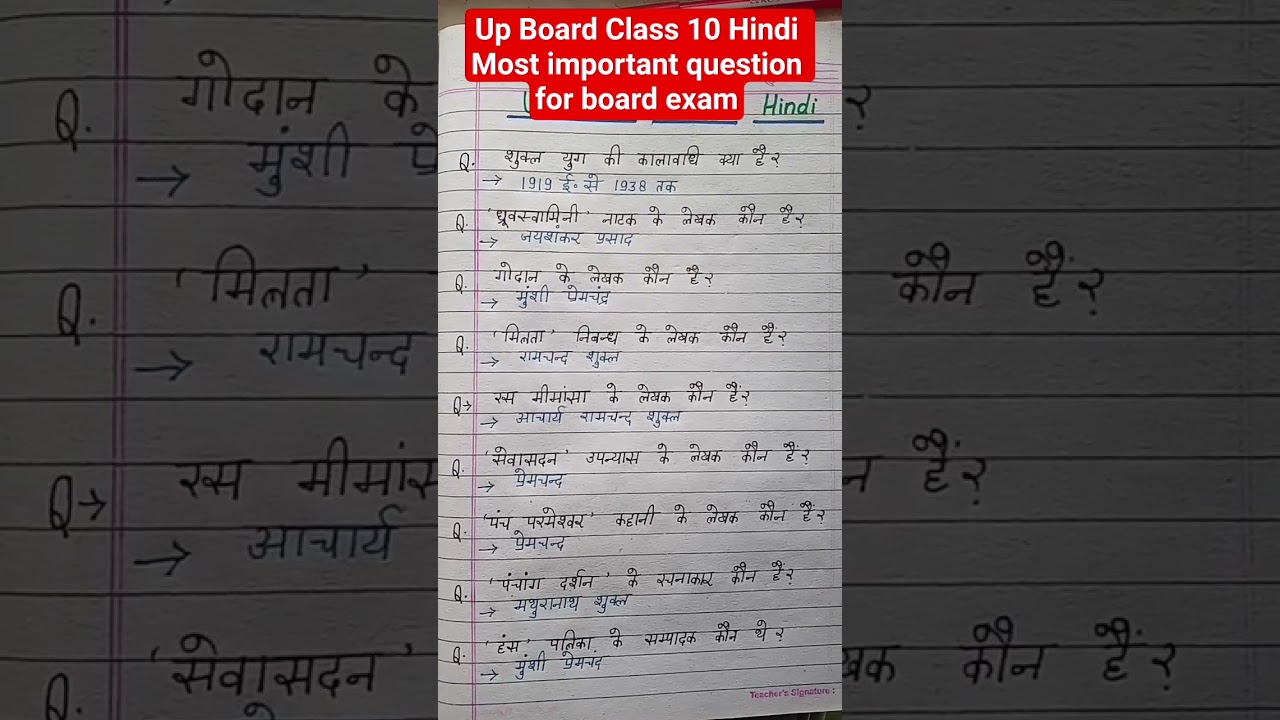 Up Board Class 10 Hindi
Most important question
for board exam
Hindi
Q. शुक्ल युग की कालावधि क्या है?
→ 1919 ई॰ से 1938 तक
Q. 'ध्रूवस्वामिनी' नाटक के लेखक कौन है?
→ जयशंकर प्रसाद
Q. गोदान के लेखक कौन है?
→ मुंशी प्रेमचंद्र
Q. 'मित्रता' निबन्ध के लेखक कौन हैं?
→ रामचन्द शुक्ल
Q→ रस मीमांसा के लेखक कौन हैं?
→ आचार्य रामचन्द शुक्ल
Q. 'सेवासदन' उपन्यास के लेखक कौन हैं?
→ प्रेमचन्द
Q. 'पंच परमेश्वर' कहानी के लेखक कौन हैं?
→ प्रेमचन्द
Q. 'पंचांग दर्शन' के रचनाकार कौन हैं?
→ मथुरानाथ शुक्ल
Q. 'हंस' पत्रिका के सम्पादक कौन थे?
→ मुंशी प्रेमचंद
Teacher's Signature :